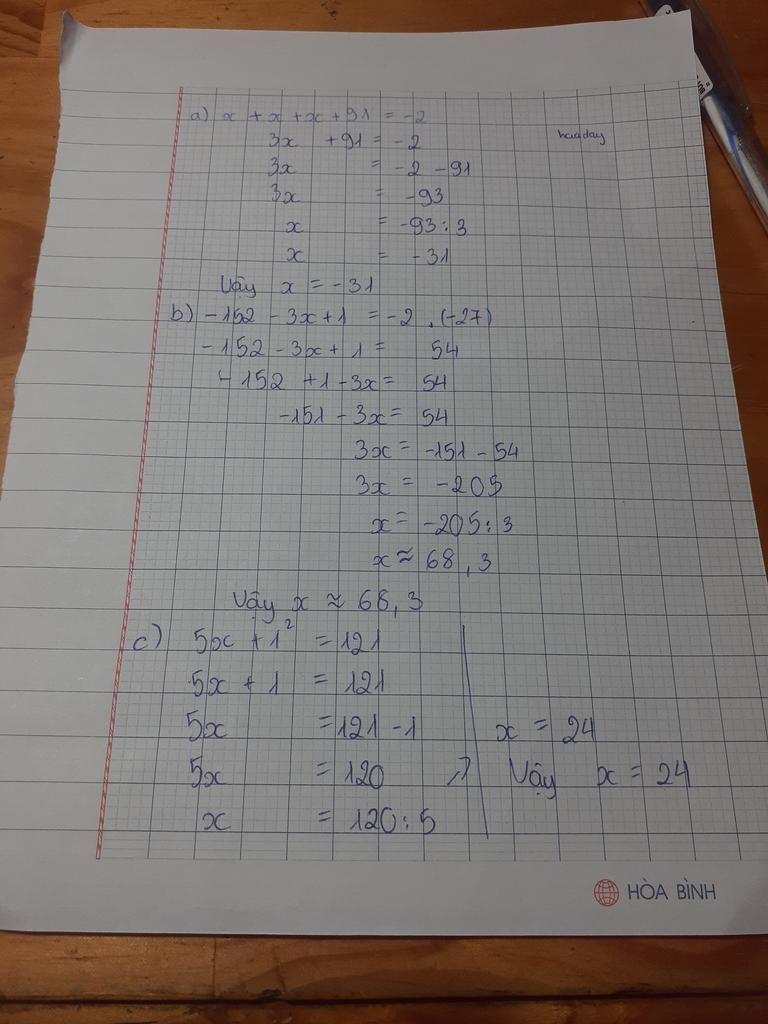 a) x + x + x + 91 = -2
3x + 91 = -2
3x = -2 - 91
3x = -93
x = -93 : 3
x = -31
Vậy x = -31
b) -152 - 3x + 1 = -2 . (-27)
-152 - 3x + 1 = 54
-152 + 1 - 3x = 54
-151 - 3x = 54
3x = -151 - 54
3x = -205
x = -205 : 3
x ≈ 68,3
Vậy x ≈ 68,3
c) 5x + 1² = 121
5x + 1 = 121
5x = 121 - 1
5x = 120
x = 120 : 5
x = 24
Vậy x = 24
HÒA BÌNH